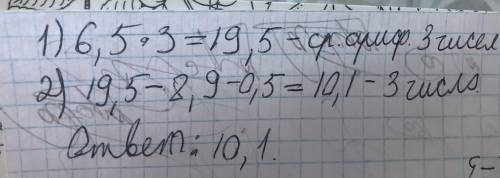 1) 6,5 · 3 = 19,5 - ср. ариф. 3 чисел
2) 19,5 - 8,9 - 0,5 = 10,1 - 3 числа
Ответ: 10,1.
5-